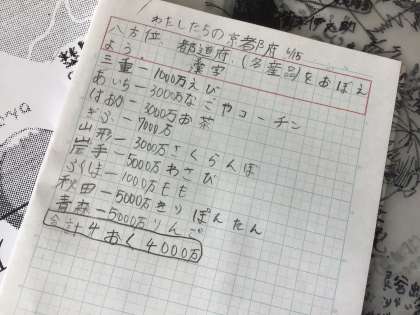 わたしたちの京都府 4/15
八方位、都道府(名産品)をおぼえ
よう。 漢字
三重ー1000万えび
あいちー3000万なごやコーチン
ー3000万お茶
ぎふー7000万
山形ー3000万さくらんぼ
岩手ー5000万わさび
ー1000万もも
秋田ー5000万きりぽんたん
青森ー5000万りんご
合計4おく4000万